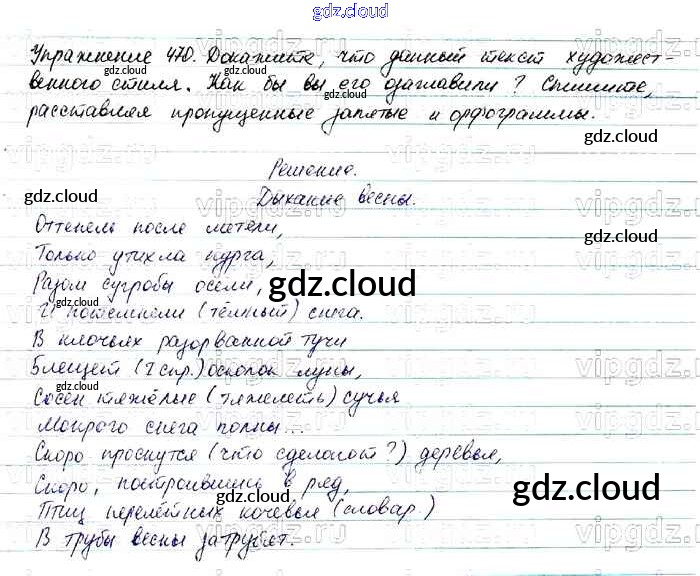 gdz.cloud
Упражнение 470. Докажите, что данный текст художест-
венного стиля. Как бы вы его озаглавили? Спишите,
расставляя пропущенные запятые и орфограммы.
Решение.
Дыхание весны.
Оттепель после метели,
Только утихла пурга,
Разом сугробы осели,
И потемнели (тёмный) снега.
В клочьях разорванной тучи
Блещет (I спр.) осколок луны,
Сосен тяжёлые (тяжелеть) сучья
Мокрого снега полны...
Скоро проснутся (что сделают?) деревья,
Скоро, построившись в ряд,
Птиц перелётных кочевья (словар.)
В трубы весны затрубят.